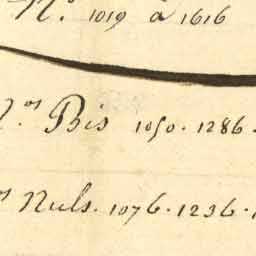 N.° 1019 à 1616
N.os Bis 1050. 1286.
Nuls. 1076. 1236.